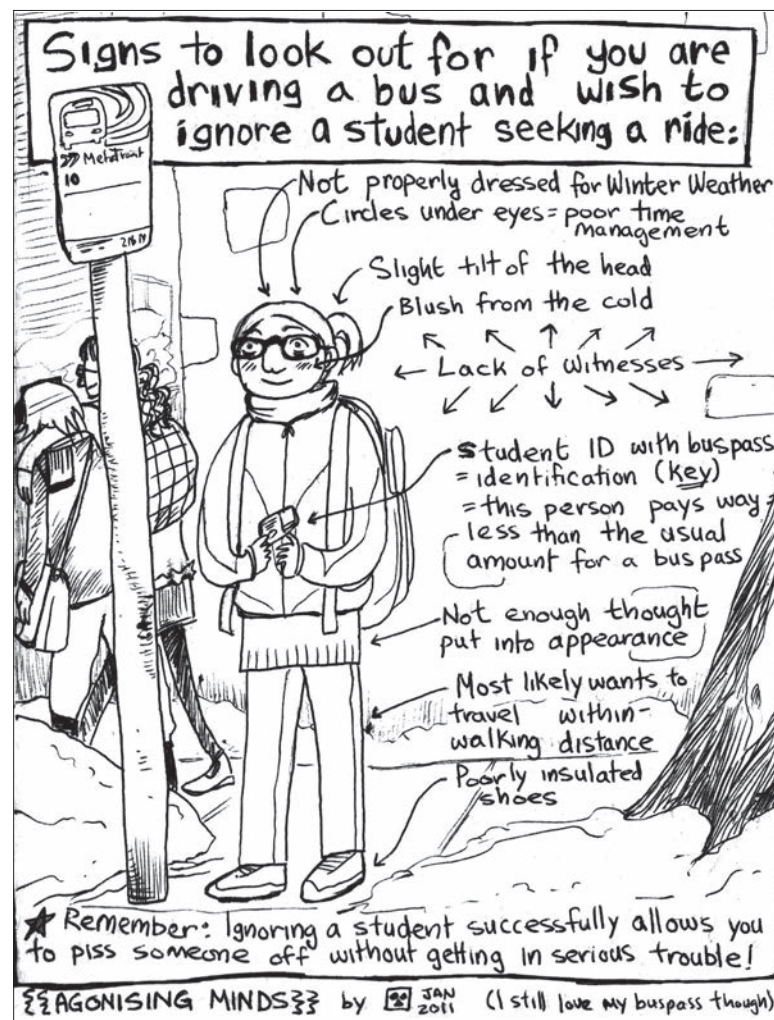 Signs to look out for if you are
driving a bus and wish to
ignore a student seeking a ride:
MetroTransit
10
Not properly dressed for Winter Weather
Circles under eyes = poor time
management
Slight tilt of the head
Blush from the cold
Lack of Witnesses
student ID with buspass
= identification (key)
= this person pays way
less than the usual
amount for a bus pass
Not enough thought
put into appearance
Most likely wants to
travel within-
walking distance
Poorly insulated
shoes
★ Remember: Ignoring a student successfully allows you
to piss someone off without getting in serious trouble!
{{AGONISING MINDS}} by JAN 2011 (I still love my buspass though)